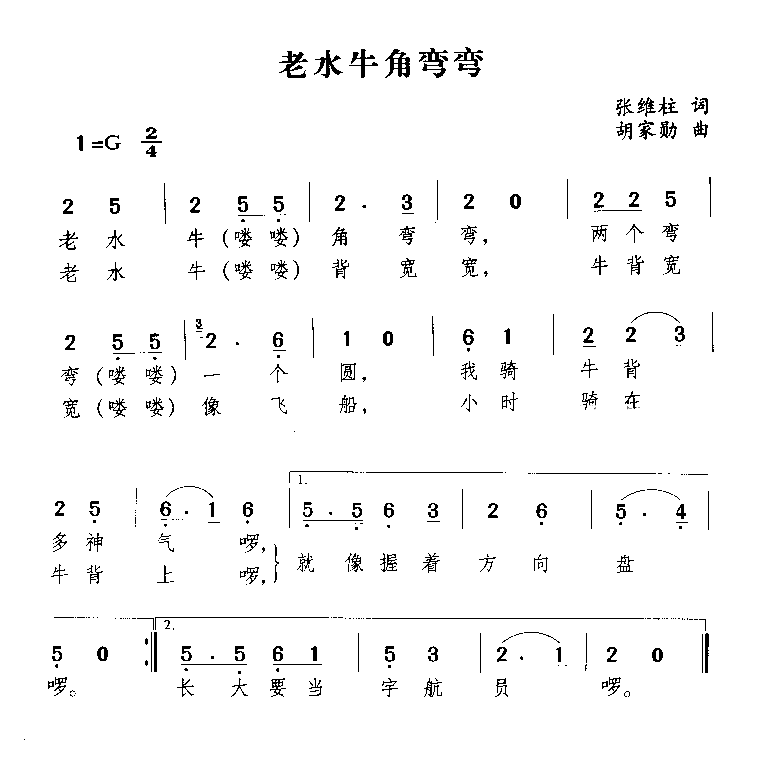 老水牛角弯弯
张维柱 词
胡家勋 曲
1=G 2/4
2 5 | 2 5 5 | 2 . 3 | 2 0 | 2 2 5 |
老 水 牛(喽 喽) 角 弯 弯, 两 个 弯
老 水 牛(喽 喽) 背 宽 宽, 牛 背 宽
2 5 5 | 3 2 . 6 | 1 0 | 6 1 | 2 2 3 |
弯(喽 喽) 一 个 圆, 我 骑 牛 背
宽(喽 喽) 像 飞 船, 小 时 骑 在
1.
2 5 | 6 . 1 6 | 5 . 5 6 3 | 2 6 | 5 . 4 |
多 神 气 啰,
就 像 握 着 方 向 盘
牛 背 上 啰,
2.
5 0 :| 5 . 5 6 1 | 5 3 | 2 . 1 | 2 0 ‖
啰。 长 大 要 当 宇 航 员 啰。